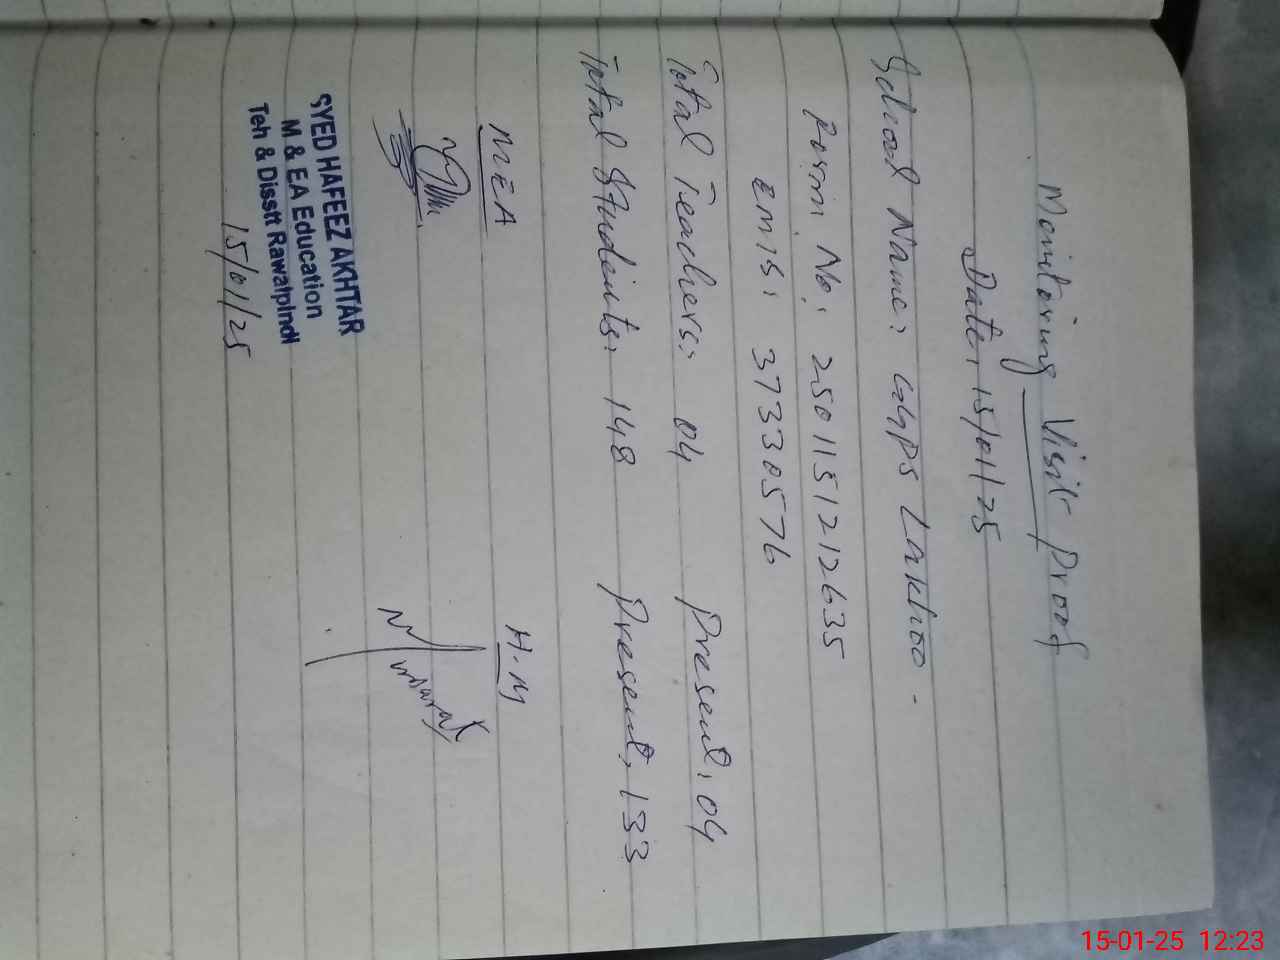 Monitoring Visit Proof
Date: 15/01/25
School Name: GGPS Lakhoo -
Form No: 2501151212635
EMIS: 37330576
Total Teachers: 04 Present: 04
Total Students: 148 Present: 133
MEA H.M
SYED HAFEEZ AKHTAR
M & EA Education
Teh & Disstt Rawalpindi
15/01/25
15-01-25 12:23